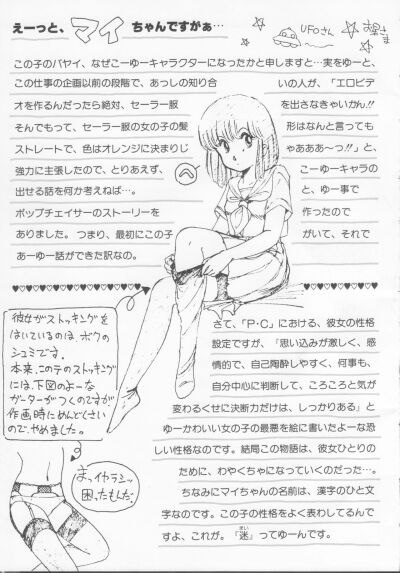 えーっと、マイちゃんですがぁ…
UFOさん
お星さま
この子のバヤイ、なぜこーゆーキャラクターになったかと申しますと…実をゆーと、
この仕事の企画以前の段階で、あっしの知り合いの人が、「エロビデ
オを作るんだったら絶対、セーラー服を出さなきゃいかん!!
そんでもって、セーラー服の女の子の髪形はなんと言っても
ストレートで、色はオレンジに決まりじゃあああ〜っ!!」と、
強力に主張したので、とりあえず、こーゆーキャラの
出せる話を何か考えねば…。と、ゆー事で
ポップチェイサーのストーリーを作ったので
ありました。つまり、最初にこの子がいて、それで
あーゆー話ができた訳なの。
へ
彼女がストッキングを
はいているのは、ボクの
シュミです。
本来、このテのストッキング
には、下図のよーな
ガーターがつくのですが
作画時にめんどくさい
ので、やめました。
まっイヤラシッ
困ったもんだ。
さて、「P・C」における、彼女の性格
設定ですが、「思い込みが激しく、感
情的で、自己陶酔しやすく、何事も、
自分中心に判断して、ころころと気が
変わるくせに決断力だけは、しっかりある」と
ゆーかわいい女の子の最悪を絵に書いたよーな恐
しい性格なのです。結局この物語は、彼女ひとりの
ために、わやくちゃになっていくのだった…。
ちなみにマイちゃんの名前は、漢字のひと文
字なのです。この子の性格をよく表わしてるんで
すよ、これが。『迷』ってゆーんです。
まい